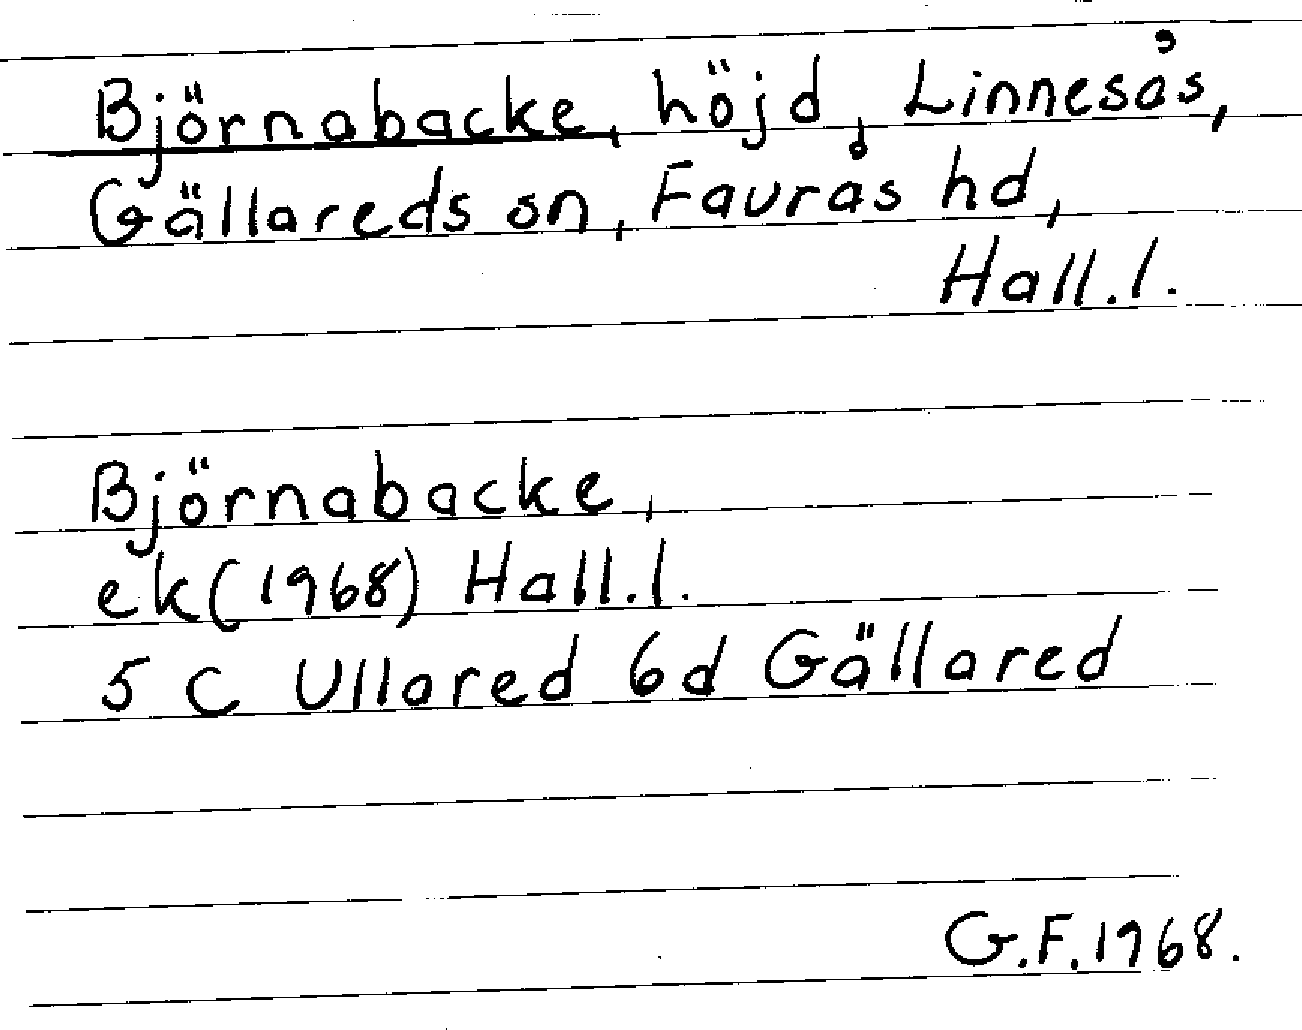 Björnabacke, höjd, Linnesås,
Gällareds sn, Faurås hd,
Hall.l.
Björnabacke,
ek(1968) Hall.l.
5 C Ullared 6d Gällared
G.F.1968.